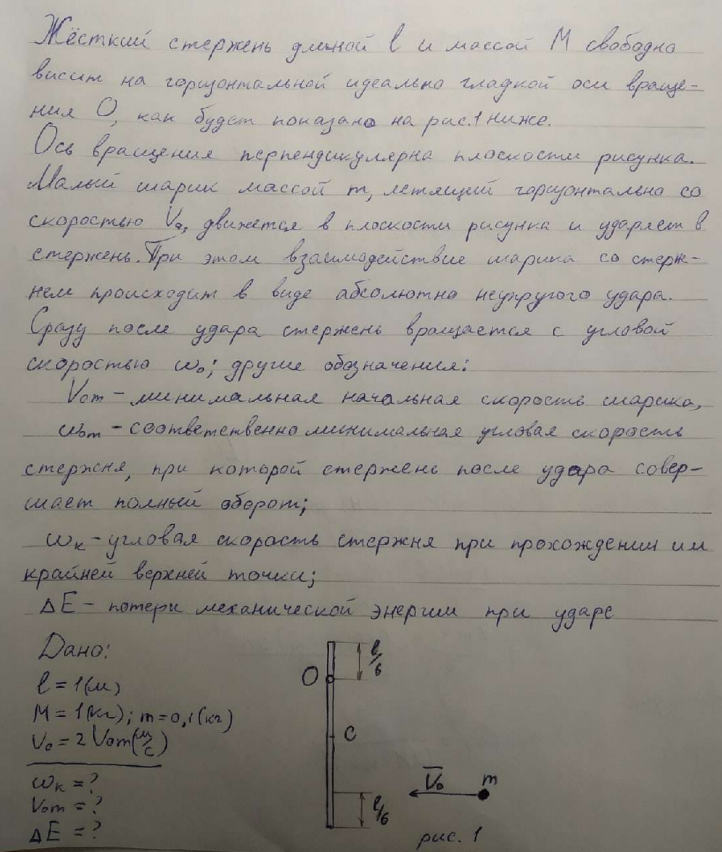 Жёсткий стержень длиной l и массой M свободно
висит на горизонтальной идеально гладкой оси враще-
ния O, как будет показано на рис.1 ниже.
Ось вращения перпендикулярна плоскости рисунка.
Малый шарик массой m, летящий горизонтально со
скоростью V₀, движется в плоскости рисунка и ударяет в
стержень. При этом взаимодействие шарика со стерж-
нем происходит в виде абсолютно неупругого удара.
Сразу после удара стержень вращается с угловой
скоростью ω₀; другие обозначения:
V₀m – минимальная начальная скорость шарика,
ω₀m – соответственно минимальная угловая скорость
стержня, при которой стержень после удара совер-
шает полный оборот;
ωк – угловая скорость стержня при прохождении им
крайней верхней точки;
ΔE – потери механической энергии при ударе
Дано:
l = 1(м)
M = 1(кг); m = 0,1(кг)
V₀ = 2 V₀m(м/с)
ωк = ?
V₀m = ?
ΔE = ?
l/6
O
C
V₀ m
l/6
рис. 1